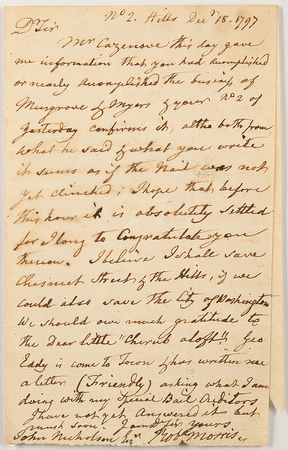 No 2. Hills Decr 18. 1797
Dr Sir
Mr Cazenove this day gave
me information that you had accomplished
or nearly accomplished the business of
Musgrove & Myers & your No 2 of
yesterday confirms it, altho both from
what he said & what you write
it seems as if the Nail was not
yet clinched; I hope that before
this hour it is absolutely settled
for I long to Congratulate you
thereon. I believe I shall save
Chesnut Street & the Hills, if we
could also save the City of Washington
We should owe much gratitude to
the Dear little "Cherub aloft". Geo
Eddy is come to Town & has written me
a letter (Friendly) asking what I am
doing with my Special Bail Creditors
I have not yet Answered it but
must soon. I am for yours
John Nicholson Esqr Robt Morris